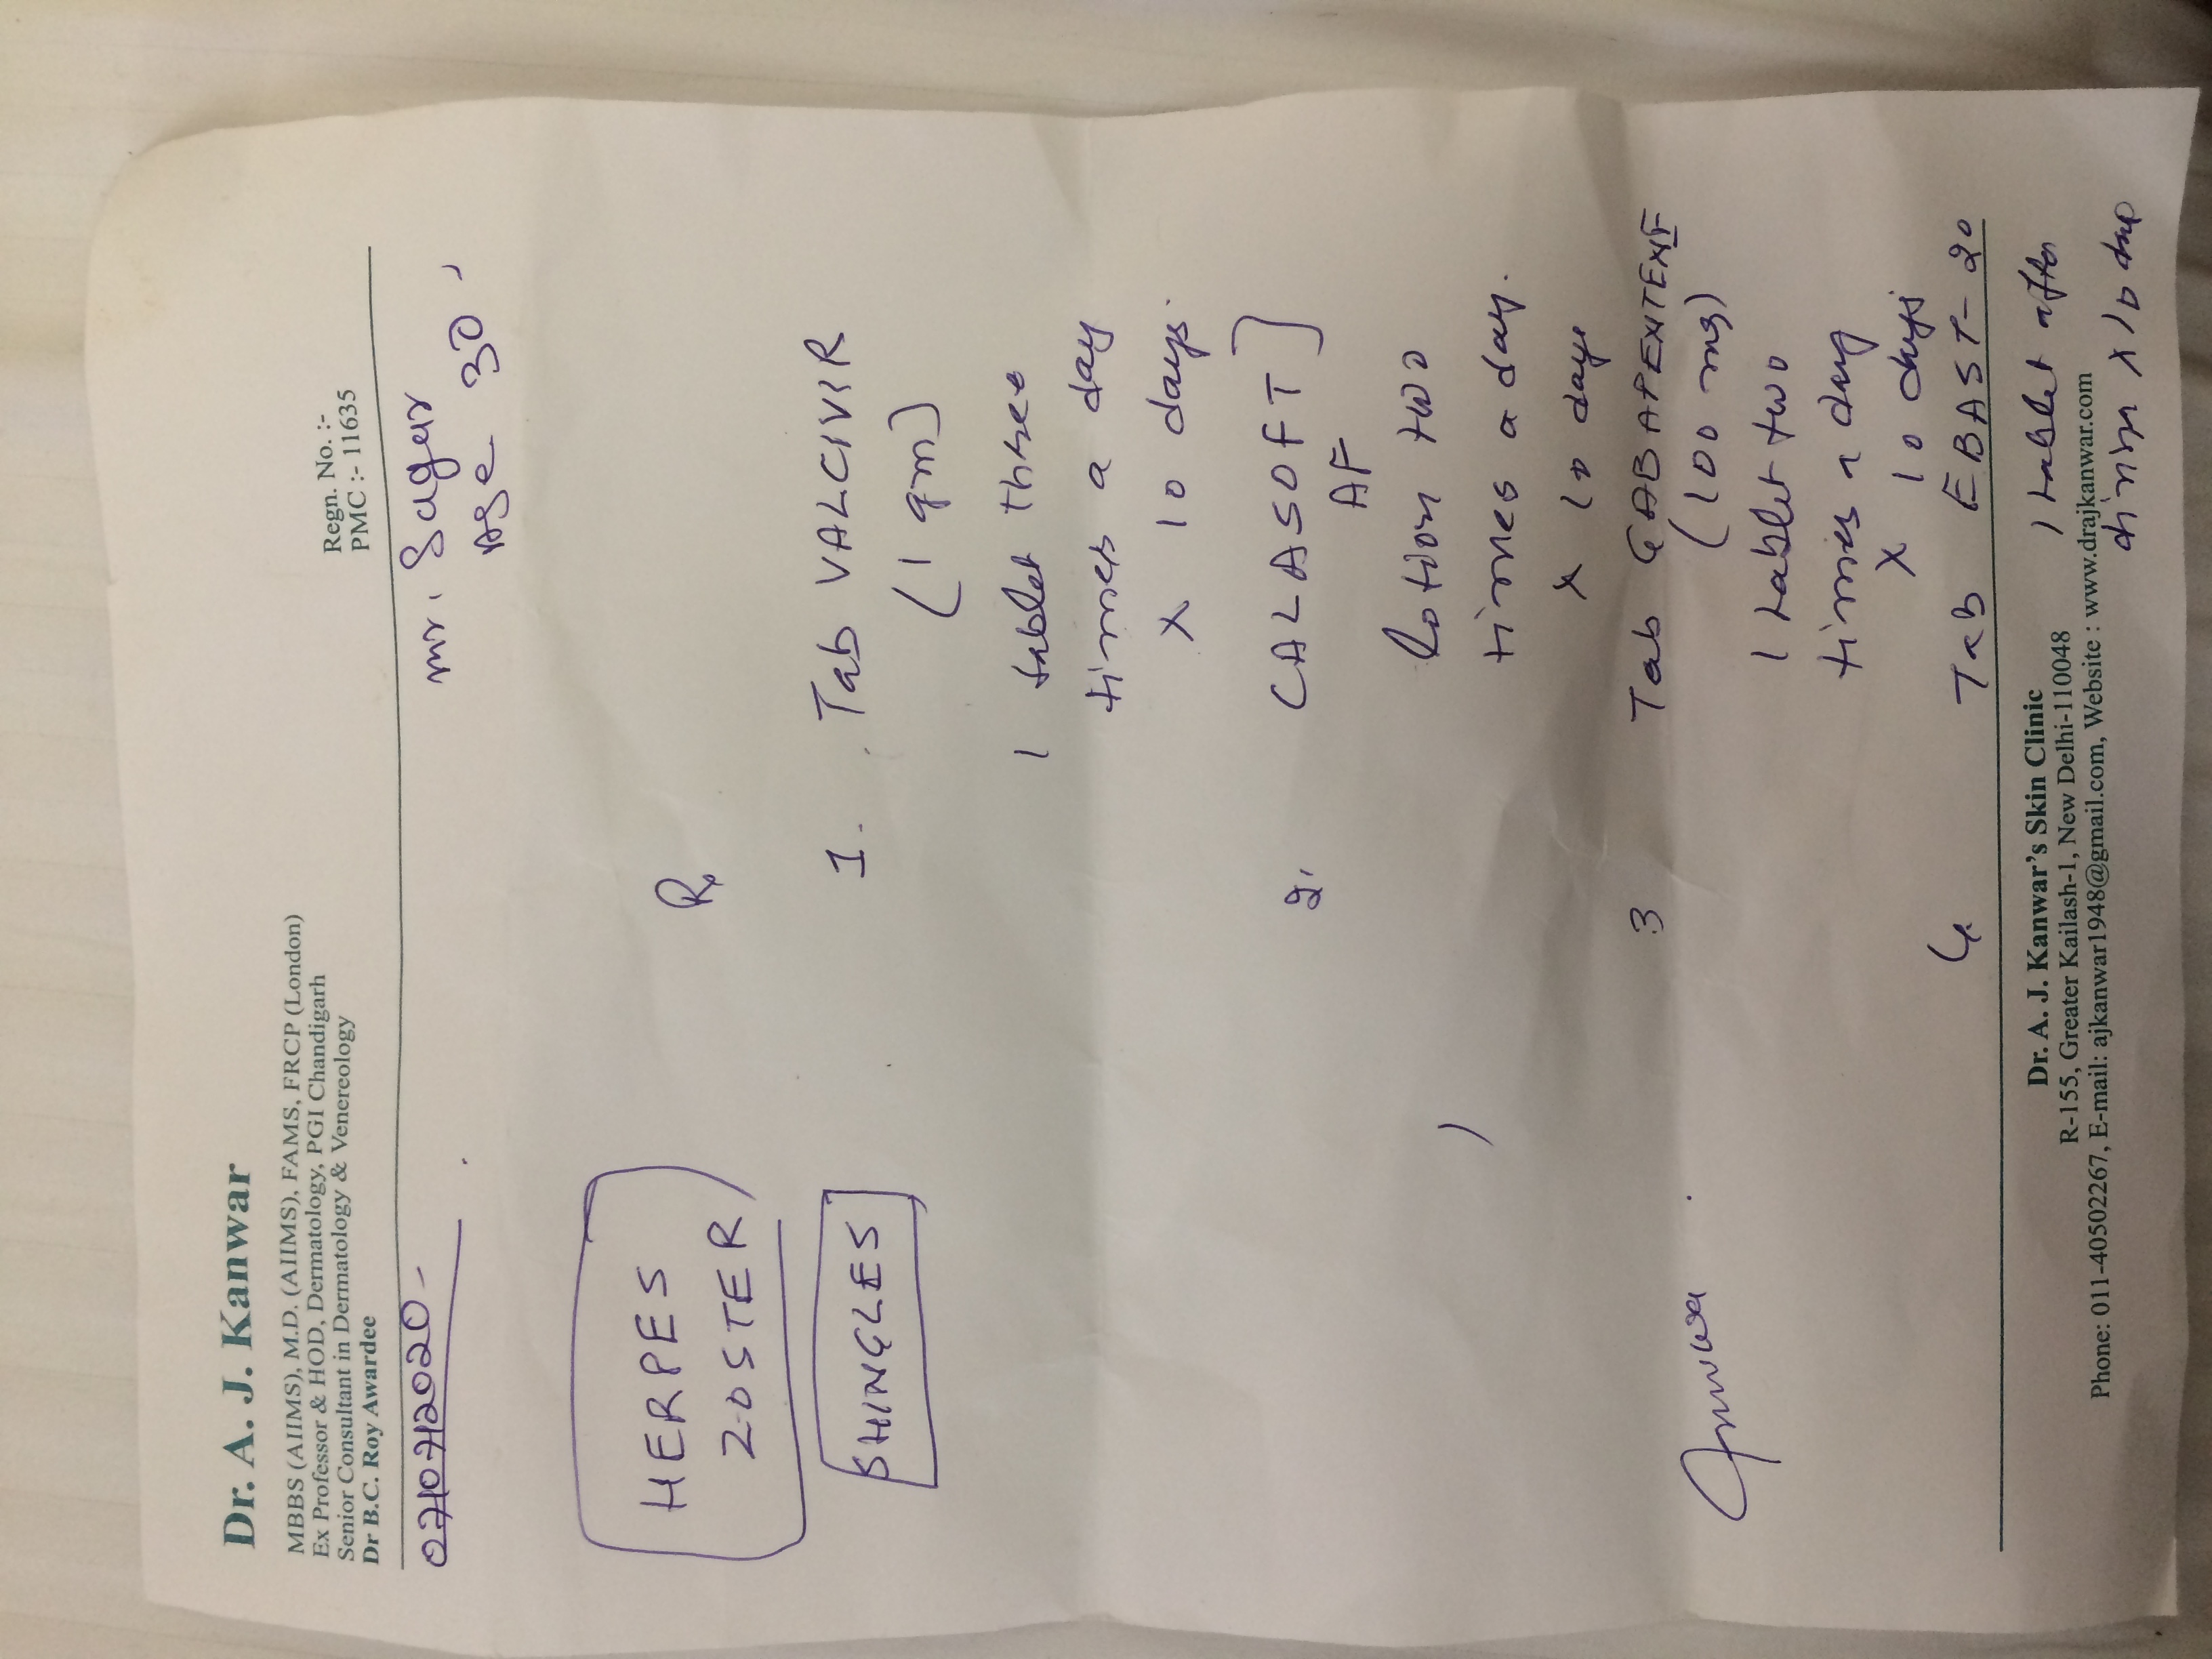 Dr. A. J. Kanwar
MBBS (AIIMS), M.D. (AIIMS), FAMS, FRCP (London)
Ex Professor & HOD, Dermatology, PGI Chandigarh
Senior Consultant in Dermatology & Venereology
Dr B.C. Roy Awardee
Regn. No. :-
PMC :- 11635
07/07/2020-
mr. Sagar
Age 30
HERPES
ZOSTER
SHINGLES
Rx
1. Tab VALCIVIR
(1 gm)
1 tablet three
times a day
x 10 days.
2. CALASOFT]
AF
lotion two
times a day.
x 10 days
3 Tab GABAPENTENE
(100 mg)
1 tablet two
times a day
x 10 days
4. Tab EBAST-20
1 tablet after
x 10 days
Dr. A. J. Kanwar's Skin Clinic
R-155, Greater Kailash-1, New Delhi-110048
Phone: 011-40502267, E-mail: ajkanwar1948@gmail.com, Website : www.drajkanwar.com